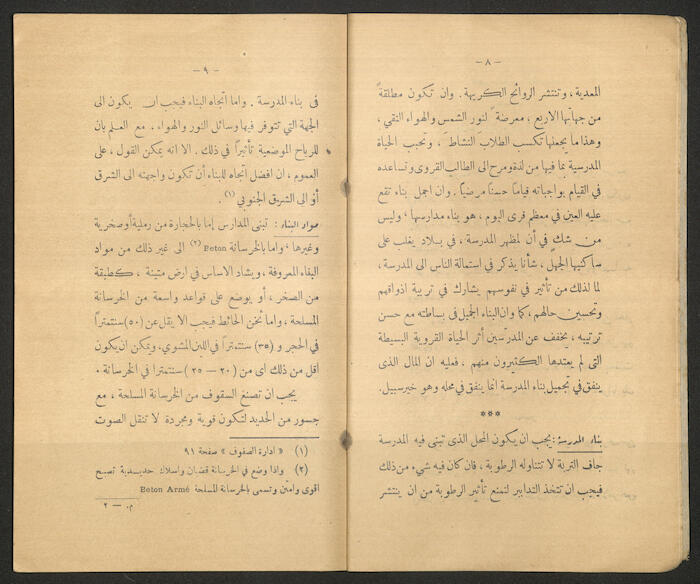 — ٨ —
المعدية، وتنتشر الروائح الكريهة. وان تكون مطلقةً
من جهاتها الاربع، معرضةً لنور الشمس والهواء النقي،
وهذا ما يجعلها تكسب الطلاب النشاط، وتحبب الحياة
المدرسية بما فيها من لذة ومرح الى الطالب القروي وتساعده
في القيام بواجباته قياماً حسناً مرضياً. وان اجمل بناء تقع
عليه العين في معظم قرى اليوم، هو بناء مدارسها، وليس
من شك في أن لمظهر المدرسة، في بلاد يغلب على
ساكنيها الجهل، شأنا يذكر في استمالة الناس الى المدرسة،
لما لذلك من تأثير في نفوسهم يشارك في تربية اذواقهم
وتحسين حالهم، كما وان البناء الجميل في بساطته مع حسن
ترتيبه، يخفف عن المدرّسين أثر الحياة القروية البسيطة
التى لم يعتدها الكثيرون منهم، فعليه ان المال الذى
ينفق في تجميل بناء المدرسة انما ينفق في محله وهو خير سبيل.
***
بناء المدرسة: يجب ان يكون المحل الذى تبنى فيه المدرسة
جاف التربة لا تتناوله الرطوبة، فان كان فيه شيء من ذلك
فيجب ان تتخذ التدابير لتمنع تأثير الرطوبة من ان ينتشر
— ٩ —
فى بناء المدرسة. واما اتجاه البناء فيجب ان يكون الى
الجهة التي تتوفر فيها وسائل النور والهواء. مع العلم بان
للرياح الموضعية تأثيراً في ذلك. الا انه يمكن القول، على
العموم، ان افضل اتجاه للبناء أن تكون واجهته الى الشرق
أو الى الشرق الجنوبي (١).
مواد البناء: تبنى المدارس إما بالحجارة من رملية أو صخرية
وغيرها، واما بالخرسانة Beton (٢) الى غير ذلك من مواد
البناء المعروفة، ويشاد الاساس في ارض متينة، كطبقة
من الصخر، أو يوضع على قواعد واسعة من الخرسانة
المسلحة، واما ثخن الحائط فيجب الا يقل عن (٥٠) سنتمتراً
في الحجر و (٣٥) سنتمتراً في اللبن المشوي، ويمكن ان يكون
أقل من ذلك اى من (٢٠ — ٢٥) سنتمترا في الخرسانة.
يجب ان تصنع السقوف من الخرسانة المسلحة، مع
جسور من الحديد لتكون قوية ومجردة لا تنقل الصوت
(١) « ادارة الصفوف » صفحة ٩١
(٢) واذا وضع في الخرسانة قضبان واسلاك حديدية تصبح
اقوى وامتن وتسمى بالخرسانة المسلحة Beton Armé
م. — ٢